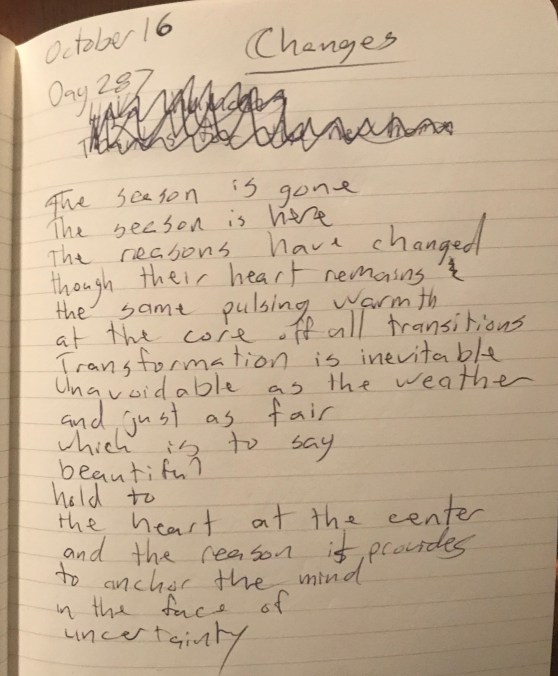 October 16
Changes
Day 287
The season is gone
The season is here
The reasons have changed
though their heart remains
the same pulsing warmth
at the core off all transitions
Transformation is inevitable
Unavoidable as the weather
and just as fair
which is to say
beautiful
hold to
the heart at the center
and the reason it provides
to anchor the mind
in the face of
uncertainty